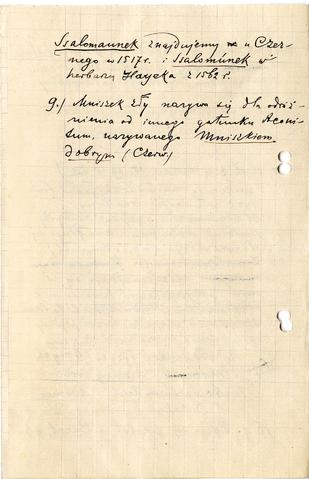 Ssalomaunek znajdujemy u Czer-
nego w 1517 r. i Ssalomúnek w
herbarzu Hayeka z 1562 r.
9.) Mniszek zły nazywa się dla odróż-
nienia od innego gatunku Aconi-
tum, nazywanego Mniszkiem
dobrym (Czerw.)